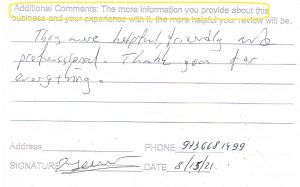 Additional Comments: The more information you provide about this
business and your experience with it, the more helpful your review will be.
They were helpful, friendly and
professional. Thank you for
everything.
Address
PHONE 9136681499
SIGNATURE DATE 8/13/21